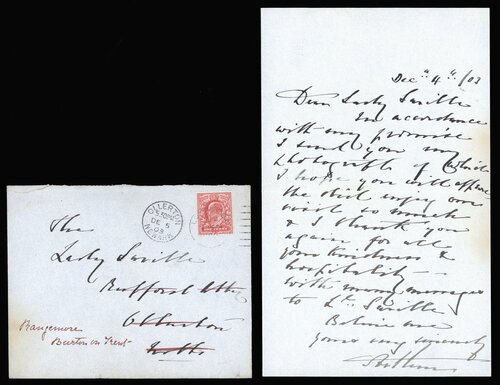 OLLERTON
5.30PM
DE 5
03
NEWARK
ONE PENNY
The
Lady Savile
Rufford Abbey
Ollerton
Notts
Rangemore
Burton on Trent
Dec 4th /03
Dear Lady Savile
In accordance
with my promise
I send you my
photografts of which
I hope you will
the
visit so much
& I thank you
again for all
your kindness &
hospitality
with many messages
to Ld Savile
Believe me
yours very sincerely